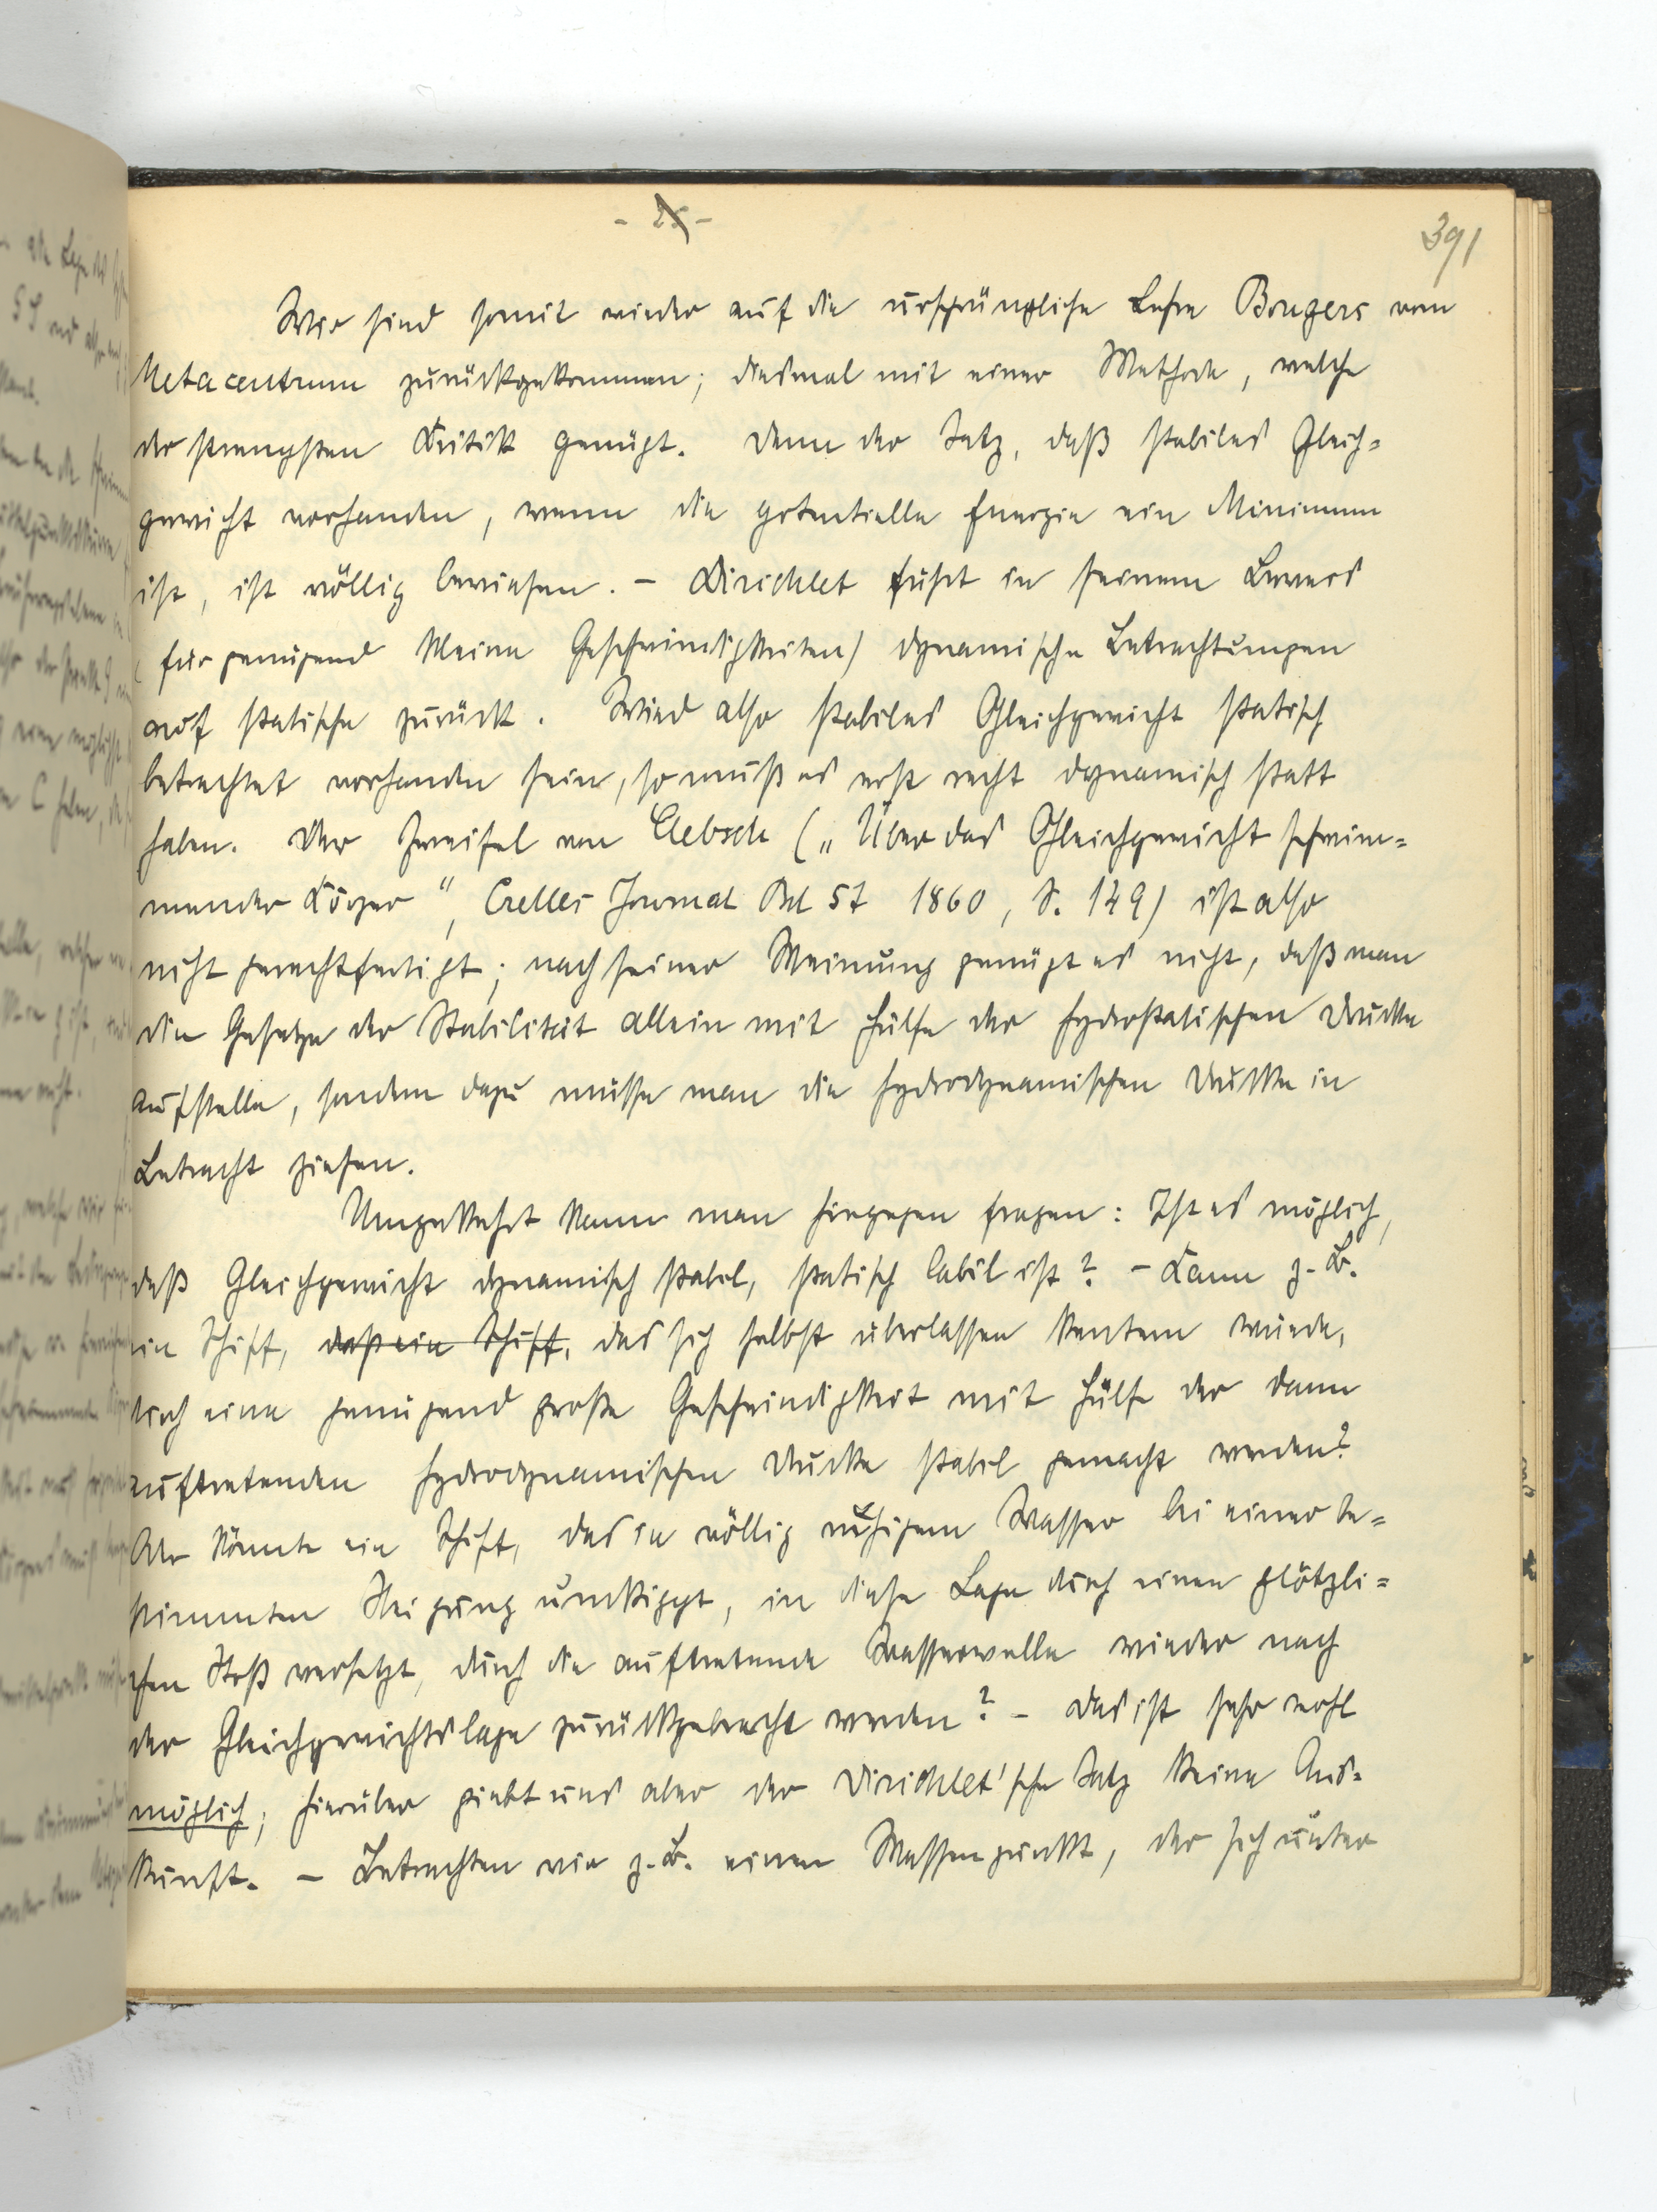 - 25 -
391
Wir sind somit wieder auf die ursprüngliche Lehre Bougers vom
Metacentrum zurückgekommen; diesmal mit einer Methode, welche
der strengsten Kritik genügt. Denn der Satz, daß stabiles Gleich=
gewicht vorhanden, wenn die potentielle Energie ein Minimum
ist, ist völlig bewiesen. - Dirichlet führt in seinem Beweis
(für genügend kleine Geschwindigkeiten) dynamische Betrachtungen
auf statische zurück. Wird also stabiles Gleichgewicht statisch
betrachtet vorhanden sein, so muß es erst recht dynamisch statt
haben. Der Zweifel von Clebsch („Über das Gleichgewicht schwim=
mender Körper“, Crelles Journal Bd 57 1860, S. 149) ist also
nicht gerechtfertigt; nach seiner Meinung genügt es nicht, daß man
die Gesetze der Stabilität allein mit Hülfe der hydrostatischen Drucke
aufstelle, sondern dazu müsse man die hydrodynamischen Drucke in
Betracht ziehen.
Umgekehrt kann man hingegen fragen: Ist es möglich,
daß Gleichgewicht dynamisch stabil, statisch labil ist? - Kann z. B.
ein Schiff, daß ein Schiff, das sich selbst überlassen kentern würde,
durch eine genügend große Geschwindigkeit mit Hülfe der dann
auftretenden hydrodynamischen Drucke stabil gemacht werden?
Oder könnte ein Schiff, das in völlig ruhigem Wasser bei einer be=
stimmten Neigung umkippt, in diese Lage durch einen plötzli=
chen Stoß versetzt, durch die auftretende Wasserwelle wieder nach
der Gleichgewichtslage zurückgebracht werden? - Das ist sehr wohl
möglich; hierüber giebt uns aber der Dirichlet'sche Satz keine Aus=
kunft. - Betrachten wir z. B. einen Massenpunkt, der sich unter